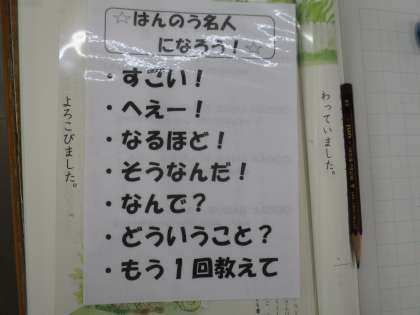 ☆はんのう名人
になろう！☆
・すごい！
・へえー！
・なるほど！
・そうなんだ！
・なんで？
・どういうこと？
・もう１回教えて
わっていました。
よろこびました。